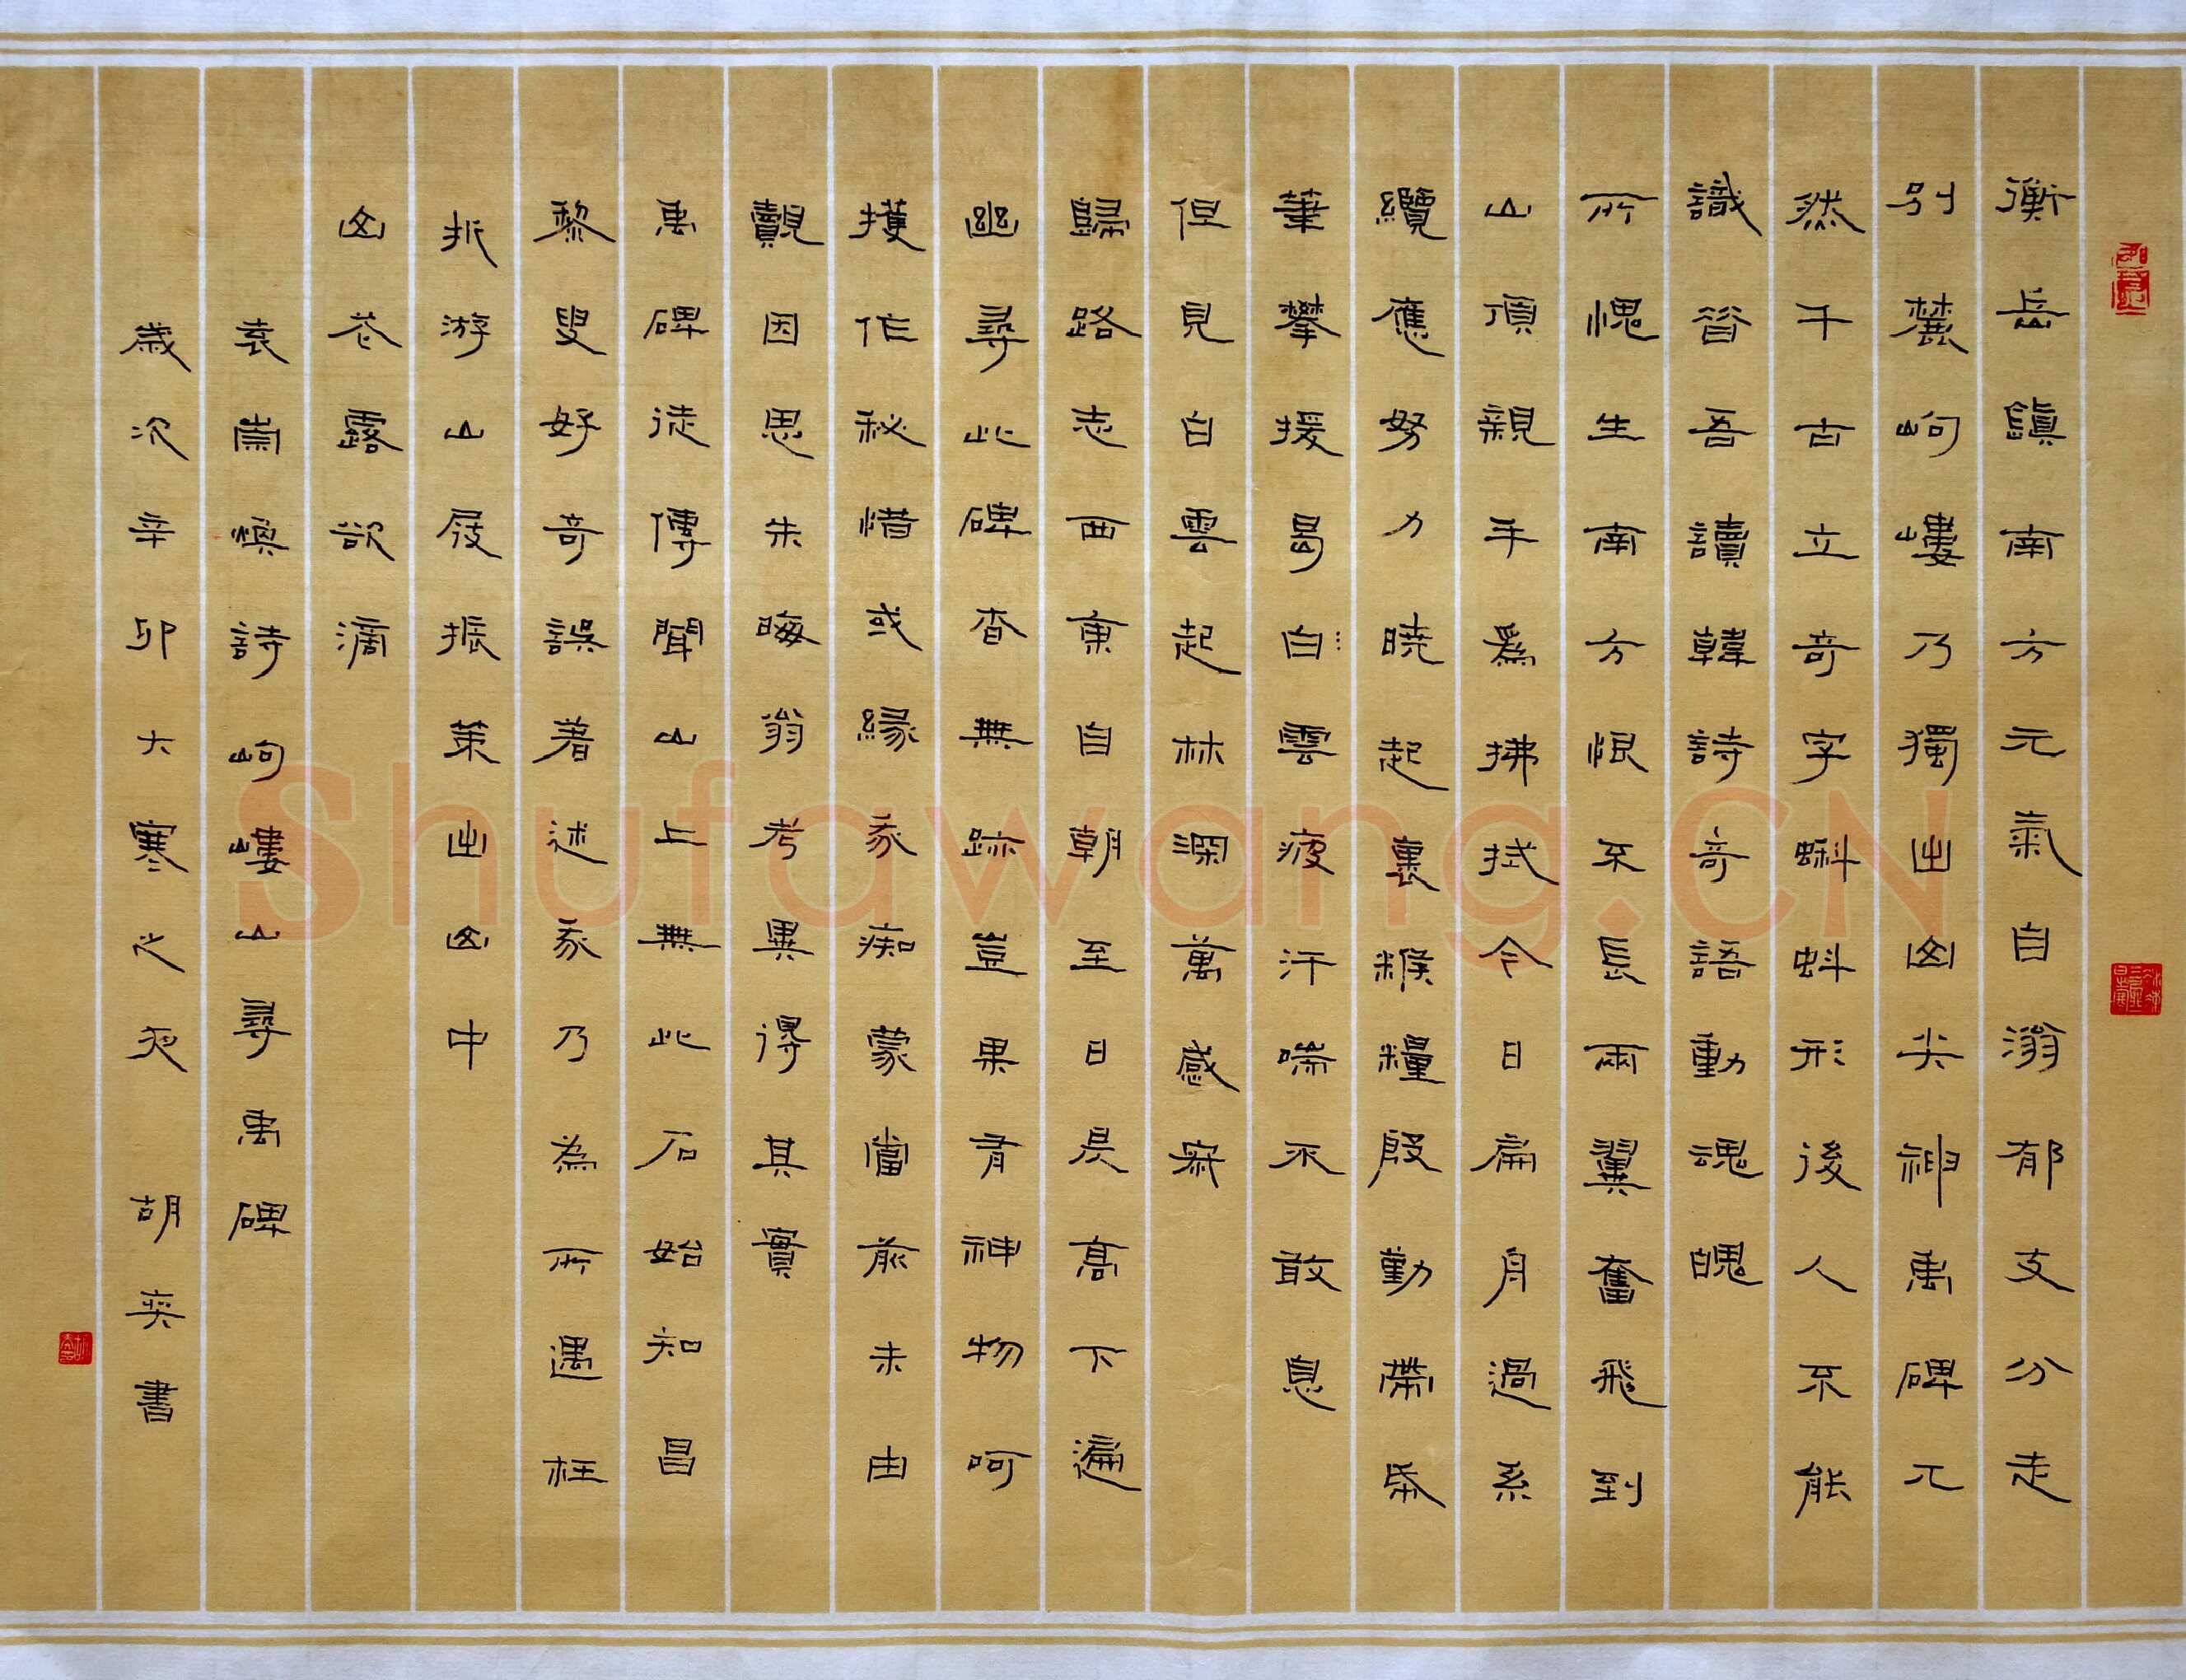 衡岳鎮南方元氣自滃郁支分走
別麓岣嶁乃獨出幽尖神禹碑兀
然千古立奇字蝌蚪形後人不能
識昔吾讀韓詩奇語動魂魄
所愧生南方恨不長兩翼奮飛到
山頂親手為拂拭今日扁舟過系
纜應努力曉起裹糇糧殷勤帶紙
筆攀援曷白雲疲汗喘不敢息
但見白雲起林深萬感寂
歸路志西東自朝至日昃高下遍
幽尋此碑杳無跡豈果有神物呵
擭作秘惜或緣我痴蒙當前未由
覿因思朱晦翁考異得其實
禹碑徒傳聞山上無此石始知昌
黎叟好奇誤著述我乃為所遇枉
折游山屐振策出幽中
幽花露欲滴
袁崇煥詩岣嶁山尋禹碑
歲次辛卯大寒之夜 胡奕書
Shufawang.CN